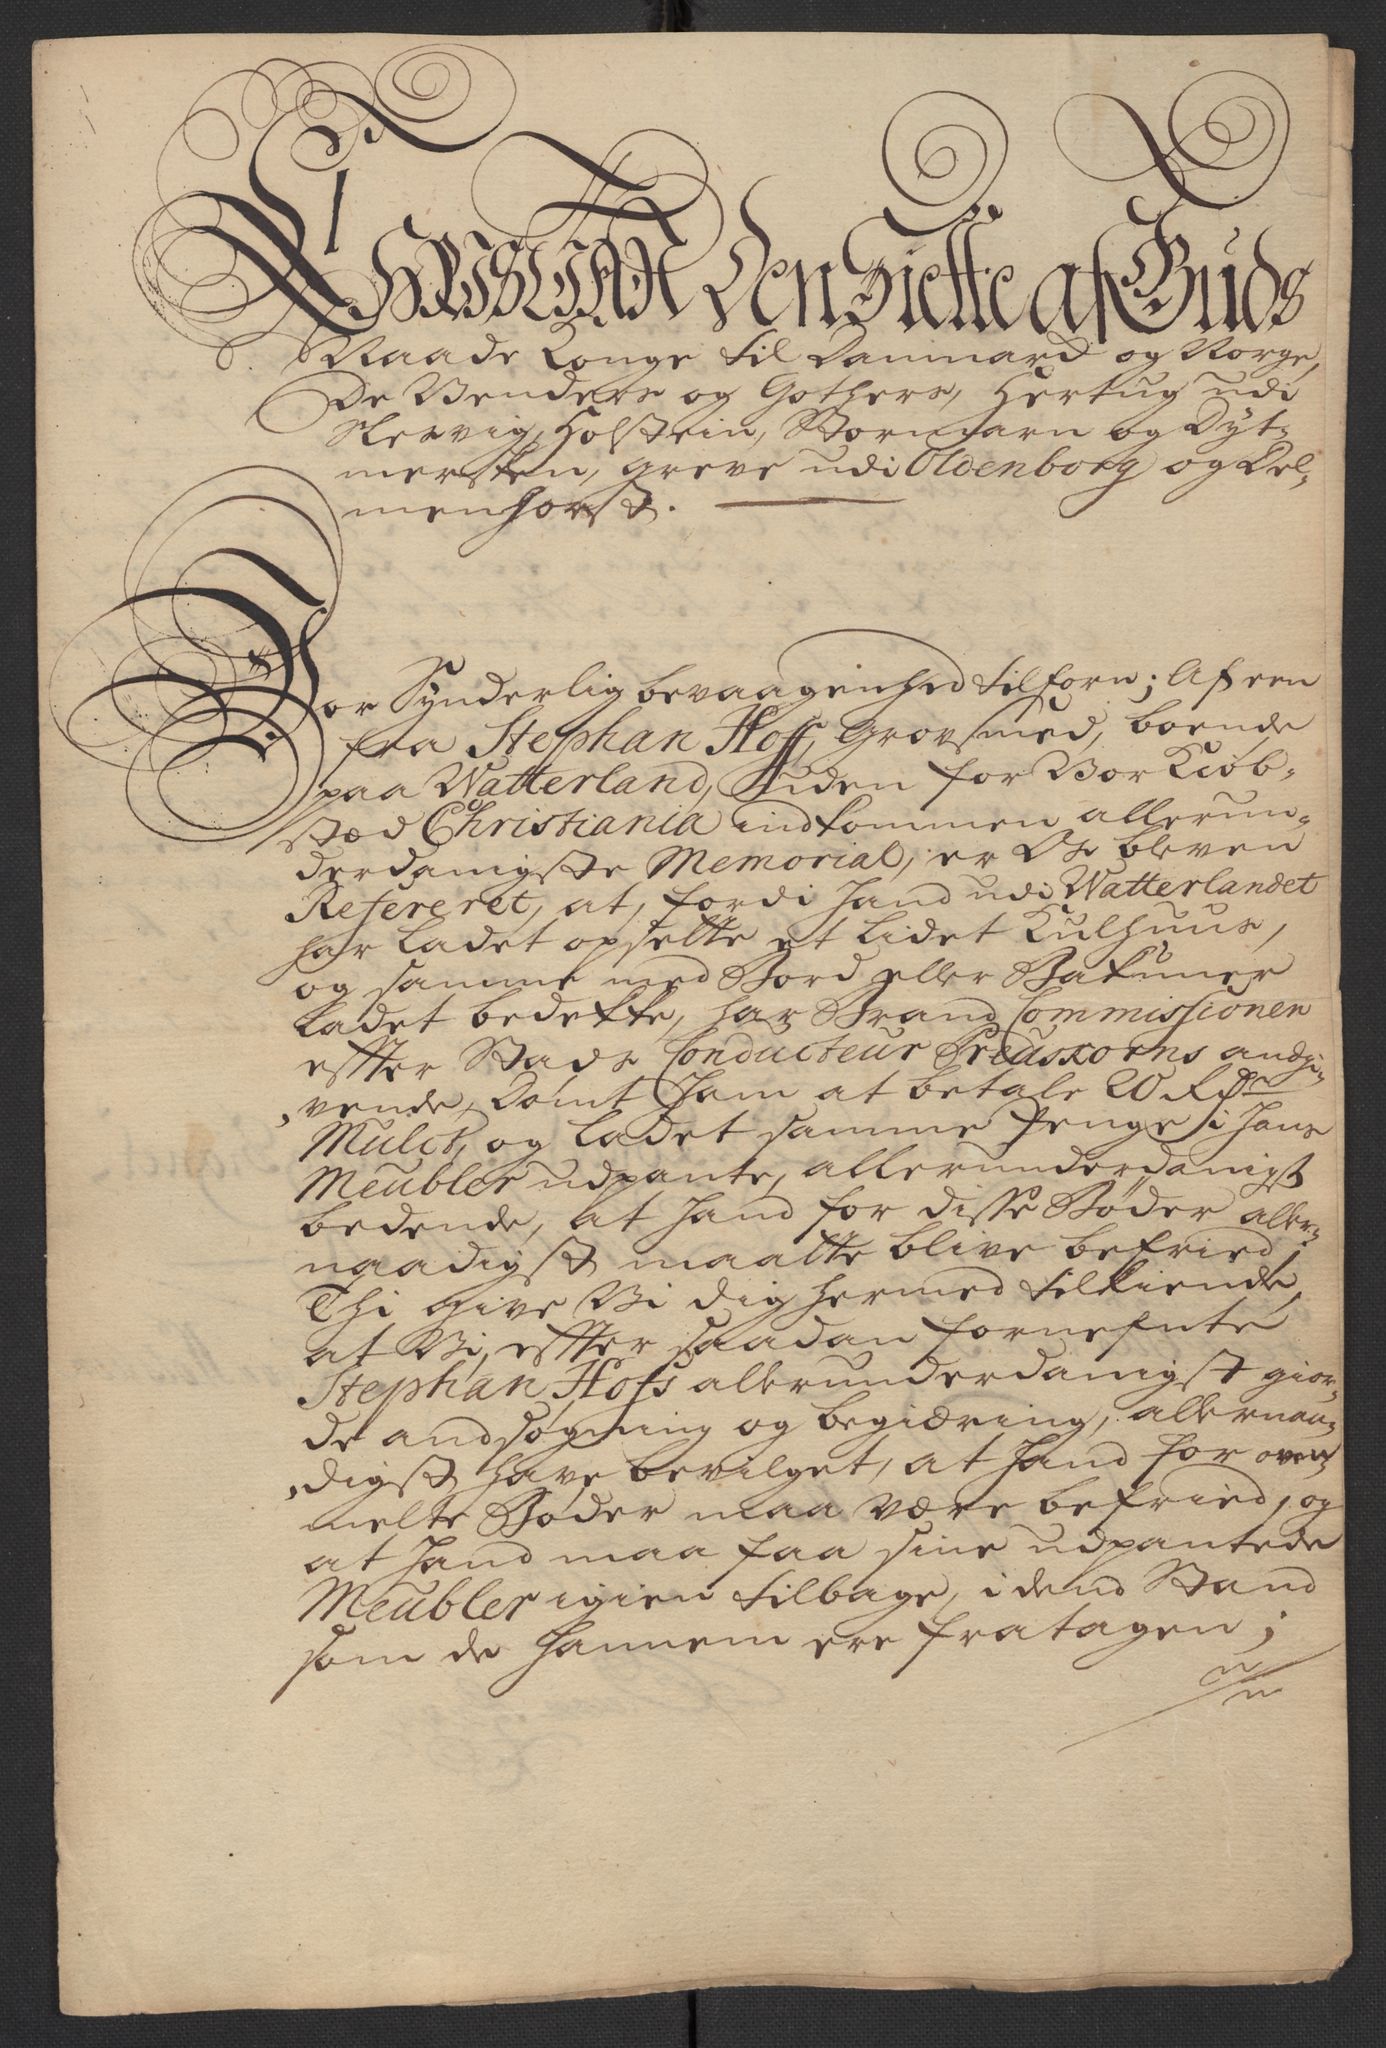 CHRISTIAN den Siette af Guds
Naade Konge til Danmark og Norge,
De Venders og Gothers, Hertug udi
Slesvig, Holstein, Stormarn og Dyt-
mersken, greve udi Oldenborg og Del-
menhorst.
Vor Synderlig bevaagenhed tilforn; Af een
fra Stephan Hoff, Grovsmed, boende
paa Watterland, uden for Vor Kiøb-
stæd Christiania indkommen allerun-
derdanigste Memorial, er Os bleven
Refereret, at, fordi hand udi Watterlandet
har ladet opsette et lidet Kulhuus,
og samme med Bord eller Bakuner
ladet bedekke, har Brand Commissionen
effter Stads Conducteur Predskorns andgi-
vende, Dømt ham at betale 20 Rdr
Mulct, og ladet samme Penge i hans
Meubler udpante, allerunderdanigst
bedende, at hand for disse Bøder aller-
naadigst maatte blive befried;
Thi give Vi dig hermed tilkiende,
at Vi, effter saadan fornefnte
Stephan Hofs allerunderdanigst gior-
de andsøgning og begiæring, allernaa-
digst have bevilget, at hand for oven-
melte Bøder maa være befried, og
at hand maa faa sine udpantede
Meubler igien tilbage, i dend Stand
som de hannem ere fratagen;